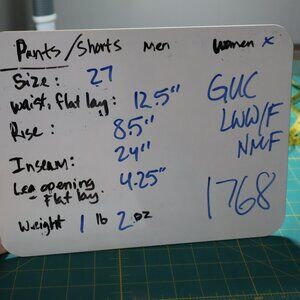 Pants/Shorts Men Women x
Size: 27
Waist, flat lay: 12.5"
Rise: 8.5"
Inseam: 24"
Leg opening 4.25"
- flat lay
Weight 1 lb 2 oz
GUC
LWW/F
NMF
1768